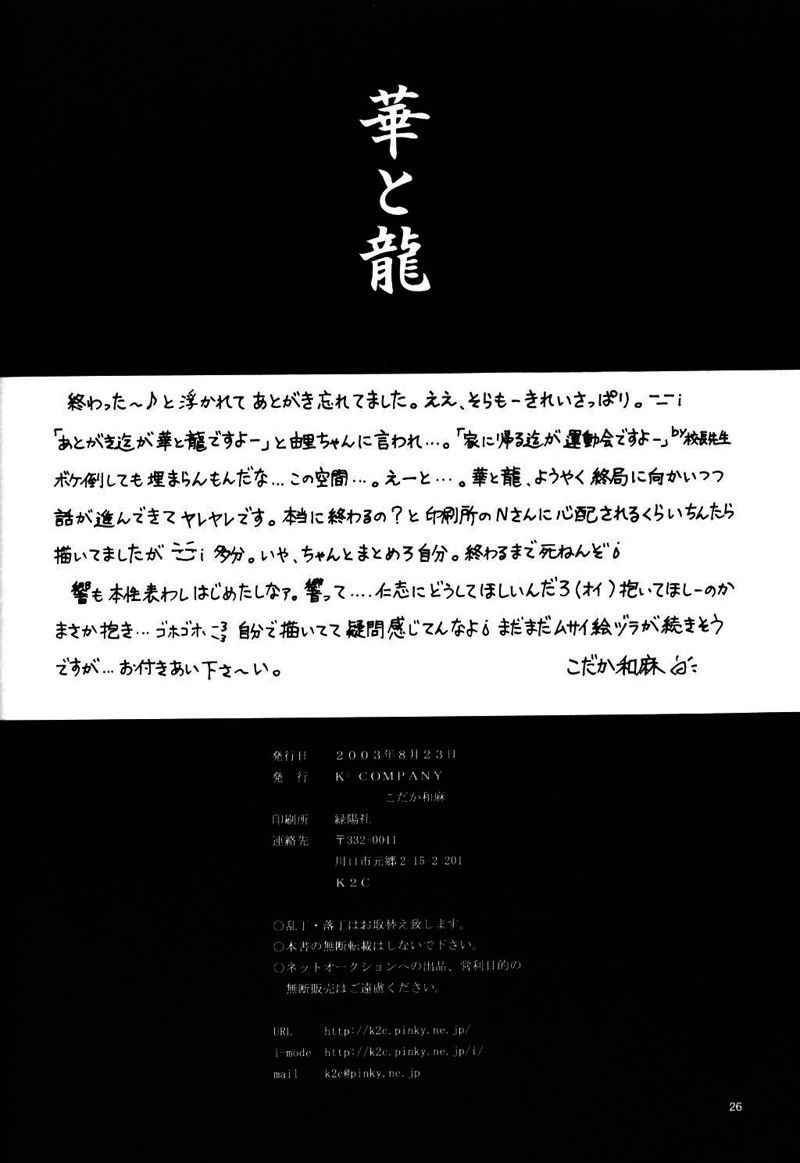 華と龍
終わった〜♪と浮かれて あとがき忘れてました。ええ、そらもーきれいさっぱり。
「あとがき迄が華と龍ですよー」と由里ちゃんに言われ…。「家に帰る迄が運動会ですよー」by校長先生
ボケ倒しても埋まらんもんだな…この空間…。えーと…。華と龍、ようやく終局に向かいつつ
話が進んできてヤレヤレです。本当に終わるの？と印刷所のNさんに心配されるくらいちんたら
描いてましたが 多分。いや、ちゃんとまとめろ自分。終わるまで死ねんぞ!
響も本性表わしはじめたしなァ。響って….仁志にどうしてほしいんだろ(オイ)抱いてほしーのか
まさか抱き…ゴホゴホ 自分で描いてて疑問感じてんなよ! まだまだムサイ絵ヅラが続きそう
ですが…お付きあい下さ〜い。 こだか和麻
発行日 ２００３年８月２３日
発 行 K² COMPANY
こだか和麻
印刷所 緑陽社
連絡先 〒332-0011
川口市元郷2-15-2-201
K２C
○乱丁・落丁はお取替え致します。
○本書の無断転載はしないで下さい。
○ネットオークションへの出品、営利目的の
無断販売はご遠慮ください。
URL http://k2c.pinky.ne.jp/
i-mode http://k2c.pinky.ne.jp/i/
mail k2c@pinky.ne.jp
26